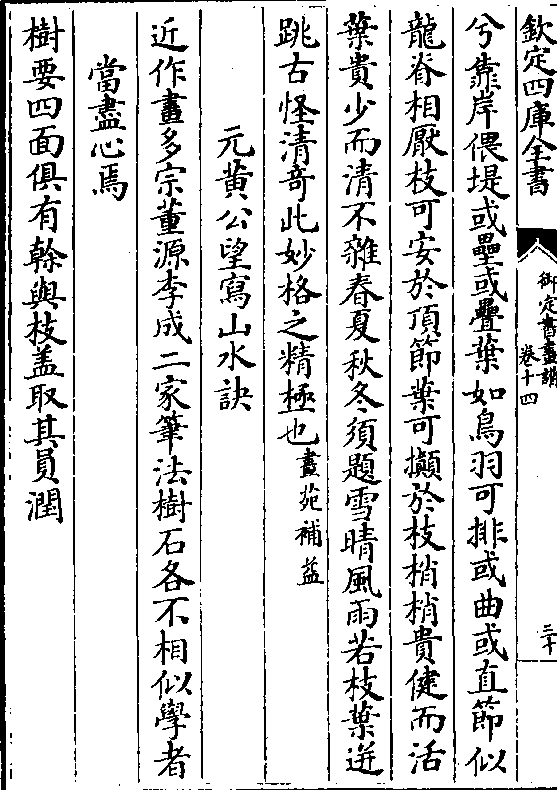 欽定四庫全書
御定書畫譜
卷十四
三十
兮靠岸偎堤或壘或疊葉如鳥羽可排或曲或直節似
龍脊相壓枝可安於頂節葉可攧於枝梢梢貴健而活
葉貴少而清不雜春夏秋冬須題雪晴風雨若枝葉迸
跳古怪清竒此妙格之精極也畫苑補益
元黄公望寫山水訣
近作畫多宗董源李成二家筆法樹石各不相似學者
當盡心焉
樹要四面俱有榦與枝盖取其員潤